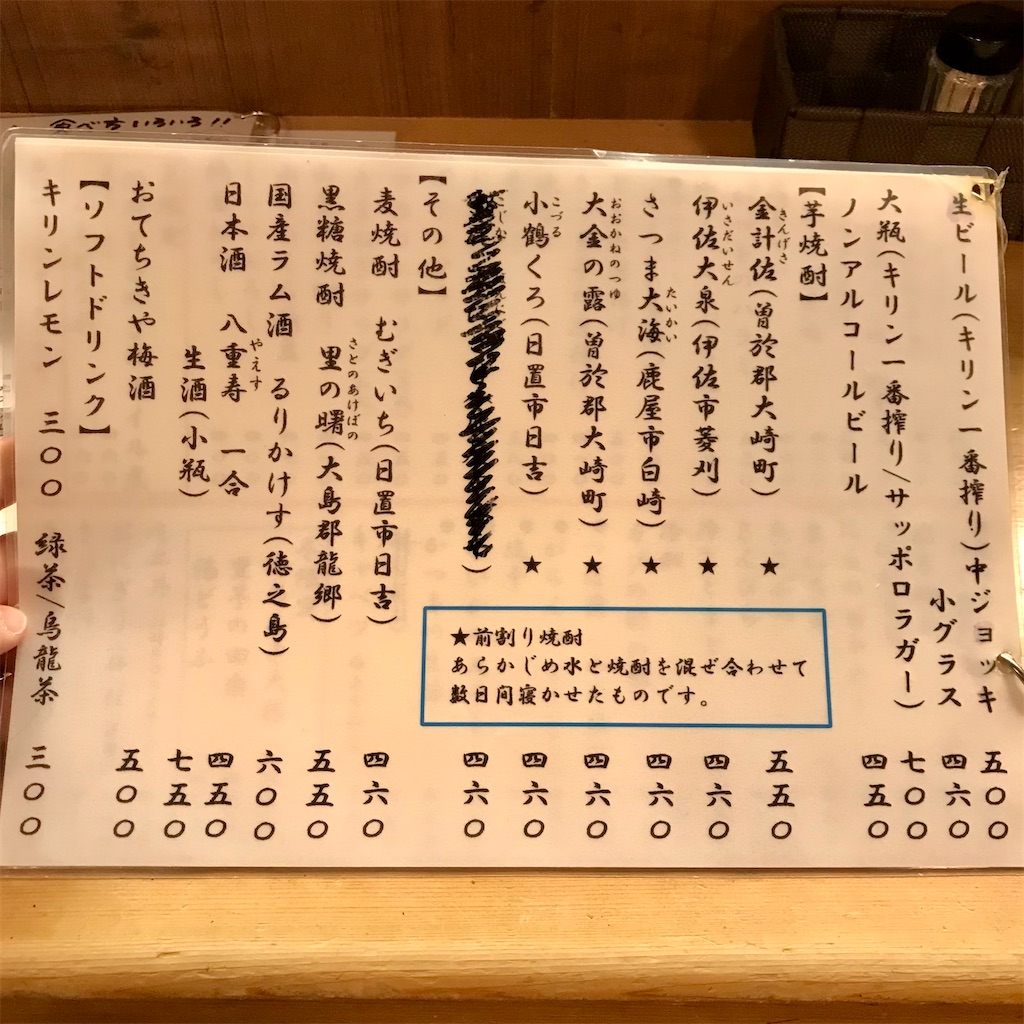 生ビール(キリン一番搾り)中ジョッキ 五五〇
小グラス 四六〇
大瓶(キリン一番搾り/サッポロラガー) 七〇〇
ノンアルコールビール 四五〇
【芋焼酎】
金計佐(曽於郡大崎町)★ 五五〇
きんげさ
伊佐大泉(伊佐市菱刈)★ 四六〇
いさだいせん
さつま大海(鹿屋市白崎)★ 四六〇
たいかい
大金の露(曽於郡大崎町)★ 四六〇
おおかねのつゆ
小鶴くろ(日置市日吉)★ 四六〇
こづる
) 四六〇
【その他】
麦焼酎 むぎいち(日置市日吉) 四六〇
黒糖焼酎 里の曙(大島郡龍郷) 五五〇
さとのあけぼの
国産ラム酒 るりかけす(徳之島) 六〇〇
日本酒 八重寿 一合 四五〇
やえす
生酒(小瓶) 七五〇
おてちきや梅酒 五〇〇
【ソフトドリンク】
キリンレモン 三〇〇 緑茶/烏龍茶 三〇〇
★前割り焼酎
あらかじめ水と焼酎を混ぜ合わせて
数日間寝かせたものです。
食べ方いろいろ!!